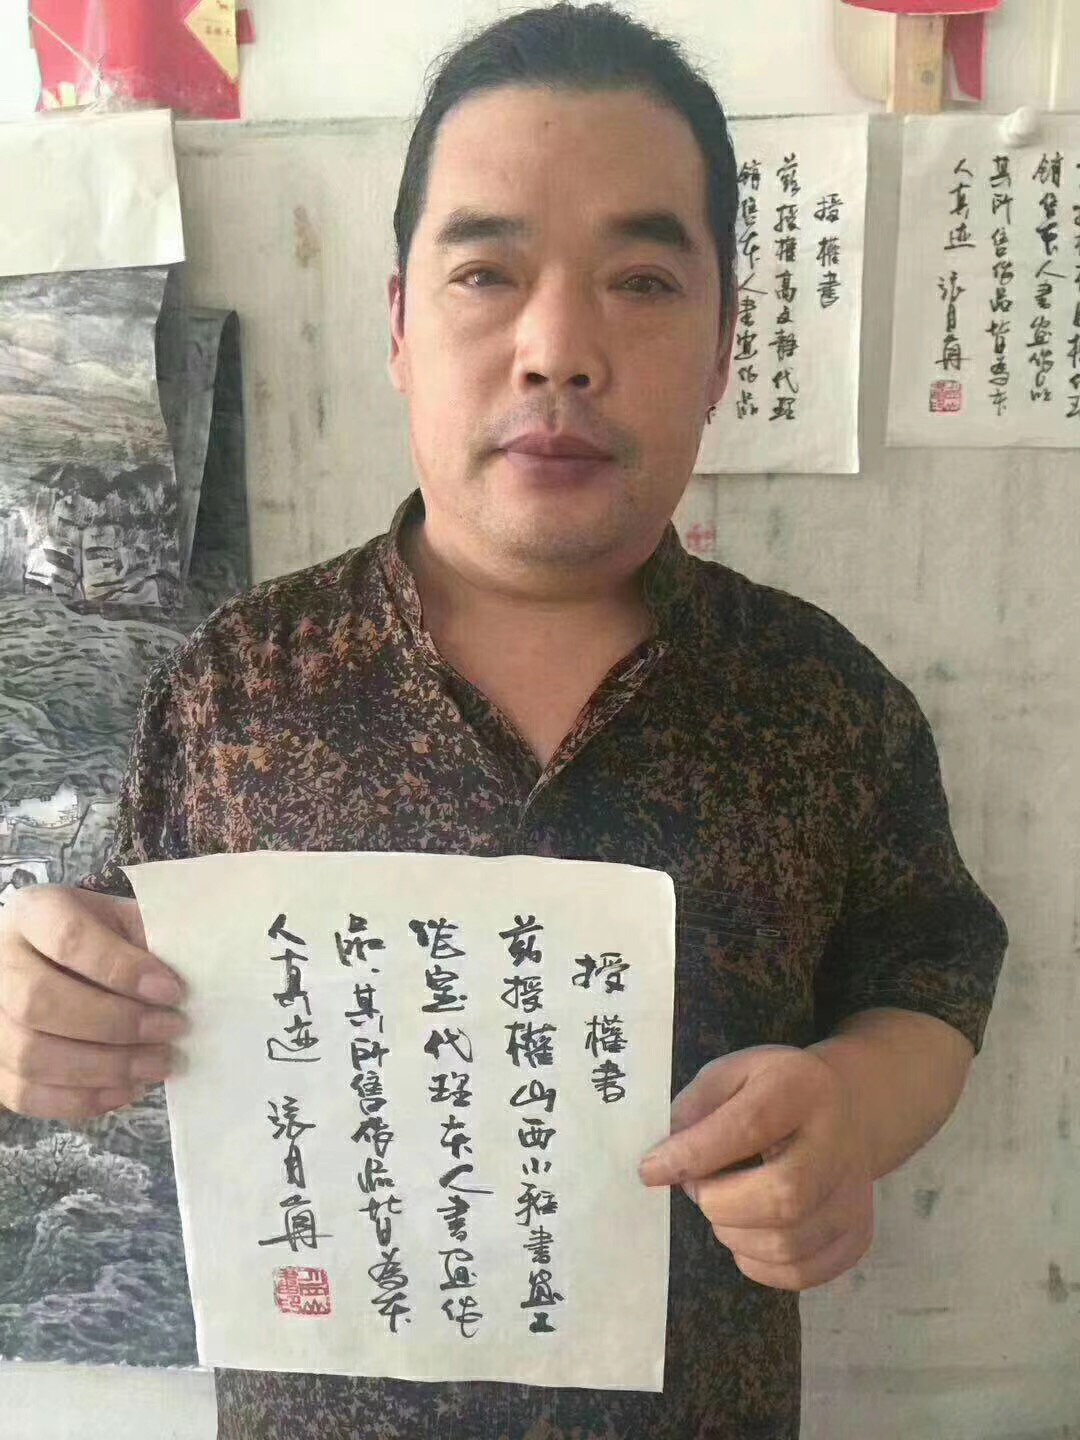 授權書
兹授權山西小程書画工
作室代理本人書画作
品、其所售作品皆為本
人真迹
張月
授權書
兹授權高文静代理
銷售本人書画作品
銷售本人書画作品
其所售作品皆為本
人真迹
張月